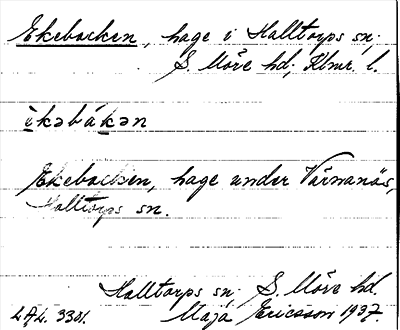 Ekebacken, hage i Halltorps sn.
S. Möre hd, Klmr. l.
ìkəbákən
Ekebacken, hage under Värnanäs,
Halltorps sn.
Halltorps sn. S. Möre hd.
Maja Ericsson 1937.